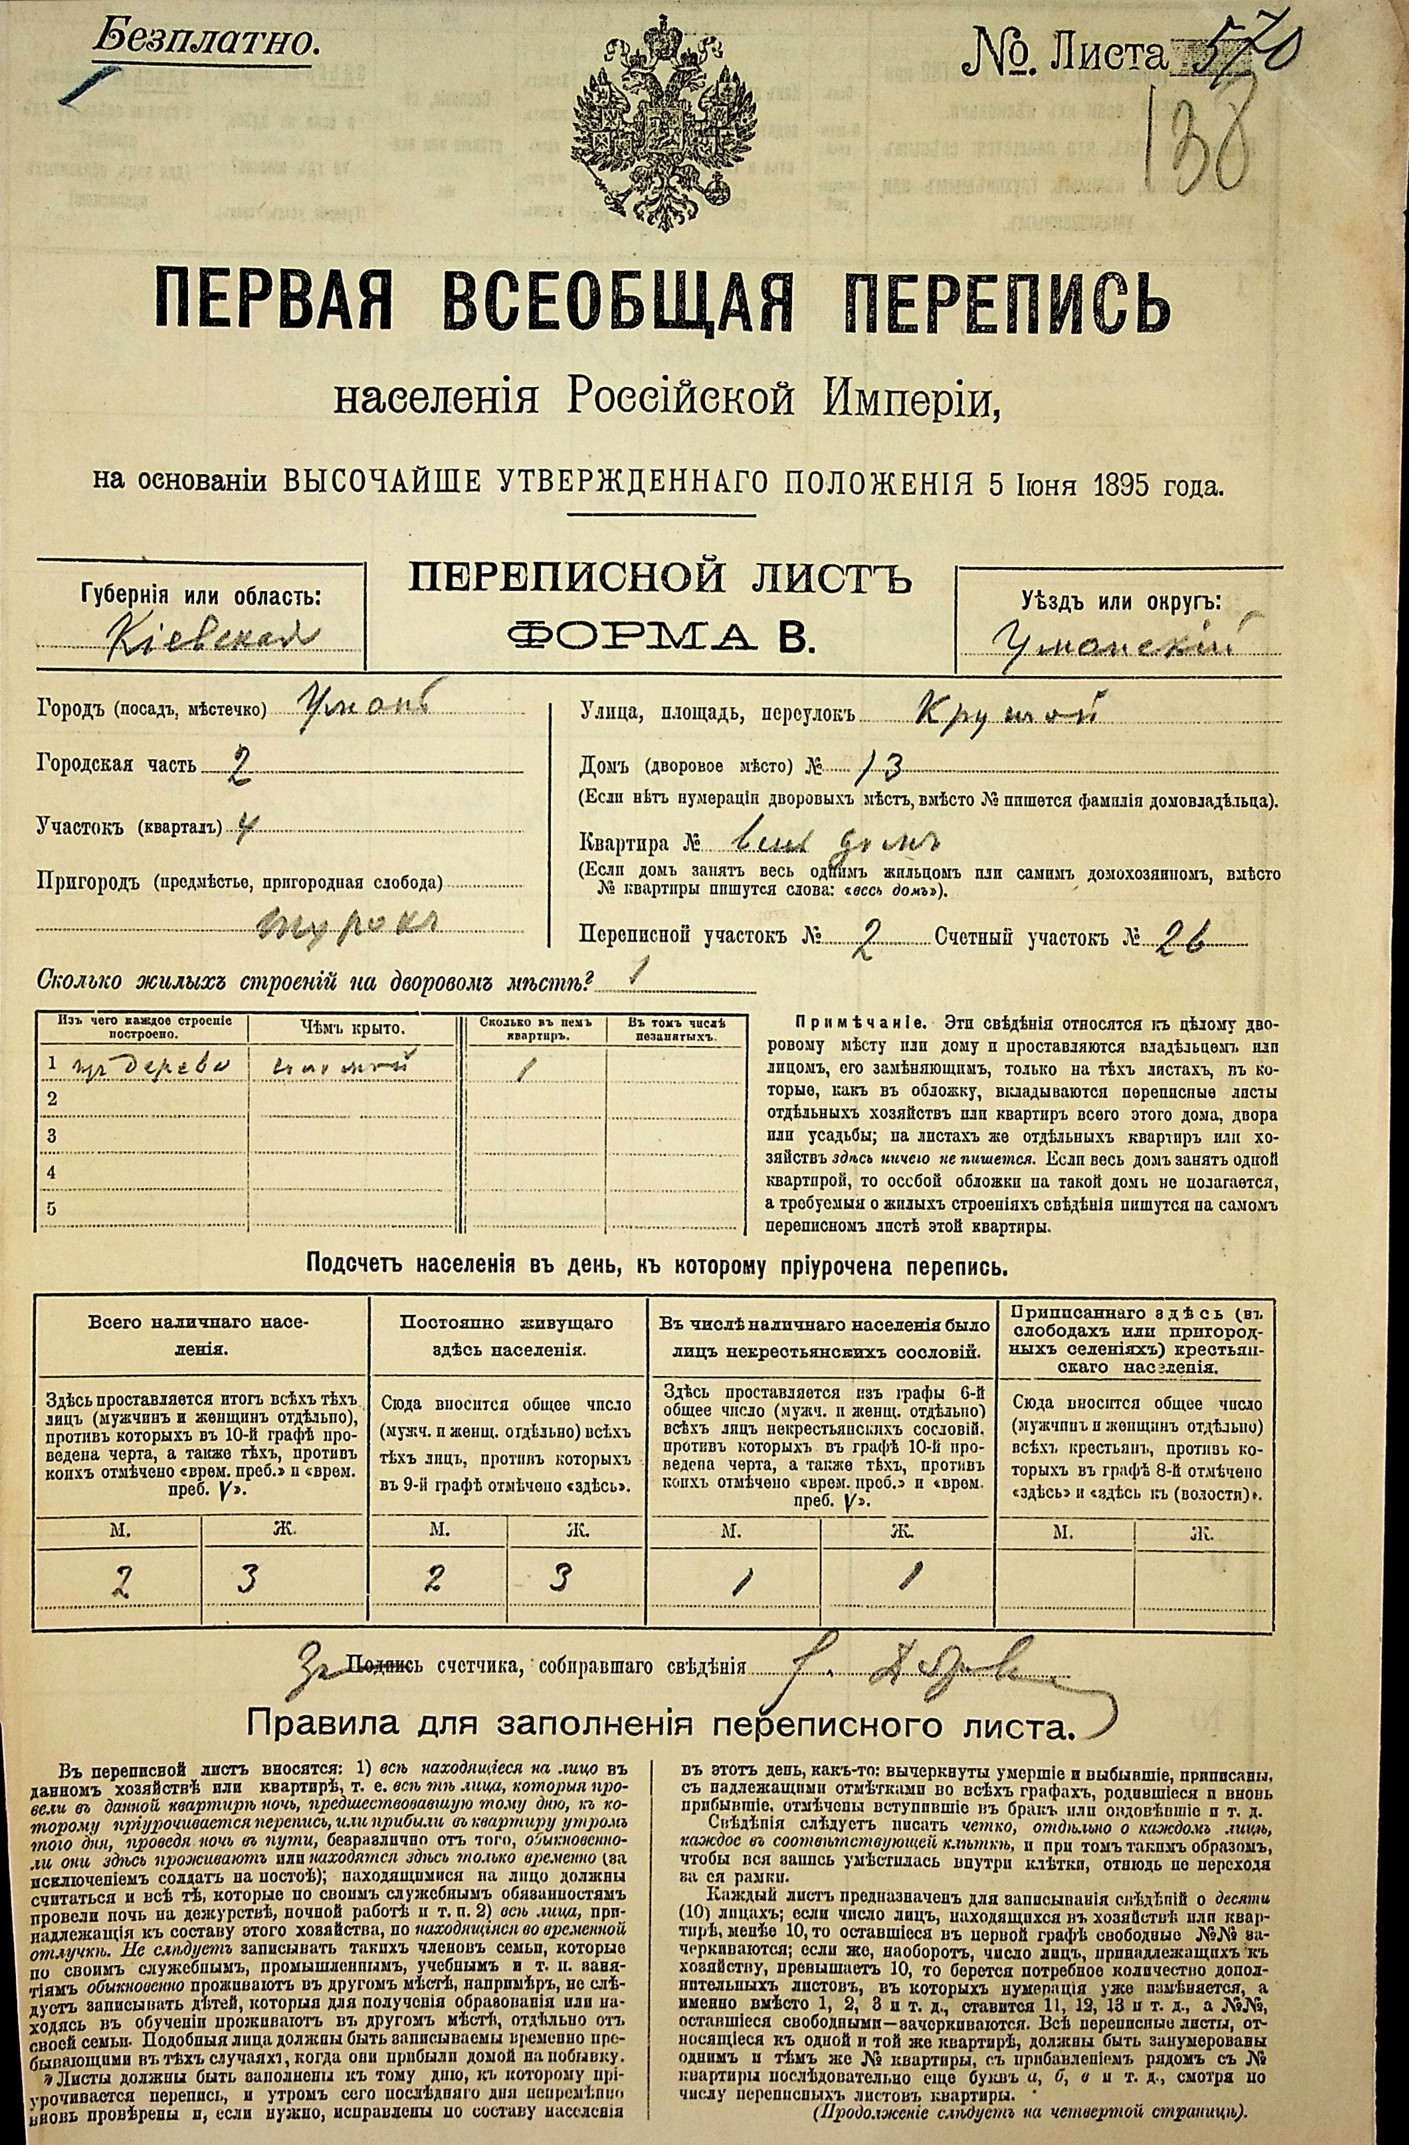 Безплатно.
№ Листа 570
138
ПЕРВАЯ ВСЕОБЩАЯ ПЕРЕПИСЬ
населенія Россійской Имперіи,
на основаніи ВЫСОЧАЙШЕ УТВЕРЖДЕННАГО ПОЛОЖЕНІЯ 5 Іюня 1895 года.
ПЕРЕПИСНОЙ ЛИСТЪ
ФОРМА В.
Губернія или область:
Кіевская
Уѣздъ или округъ:
Уманскій
Городъ (посадъ, мѣстечко) Умань
Городская часть 2
Участокъ (кварталъ) 4
Пригородъ (предмѣстье, пригородная слобода)
турокъ
Улица, площадь, переулокъ Крутой
Домъ (дворовое мѣсто) № 13
(Если нѣтъ нумераціи дворовыхъ мѣстъ, вмѣсто № пишется фамилія домовладѣльца).
Квартира № весь домъ
(Если домъ занятъ весь однимъ жильцомъ или самимъ домохозяиномъ, вмѣсто
№ квартиры пишутся слова: «весь домъ»).
Переписной участокъ № 2 Счетный участокъ № 26
Сколько жилыхъ строеній на дворовомъ мѣстѣ? 1
Изъ чего каждое строеніе построено.
Чѣмъ крыто.
Сколько въ немъ квартиръ.
Въ томъ числѣ незанятыхъ.
1 изъ дерева соломой 1
2
3
4
5
Примѣчаніе. Эти свѣдѣнія относятся къ цѣлому дво-
ровому мѣсту или дому и проставляются владѣльцемъ или
лицомъ, его замѣняющимъ, только на тѣхъ листахъ, въ ко-
торые, какъ въ обложку, вкладываются переписные листы
отдѣльныхъ хозяйствъ или квартиръ всего этого дома, двора
или усадьбы; на листахъ же отдѣльныхъ квартиръ или хо-
зяйствъ здѣсь ничего не пишется. Если весь домъ занятъ одной
квартирой, то особой обложки на такой домъ не полагается,
а требуемыя о жилыхъ строеніяхъ свѣдѣнія пишутся на самомъ
переписномъ листѣ этой квартиры.
Подсчетъ населенія въ день, къ которому пріурочена перепись.
Всего наличнаго насе-
ленія.
Здѣсь проставляется итогъ всѣхъ тѣхъ
лицъ (мужчинъ и женщинъ отдѣльно),
противъ которыхъ въ 10-й графѣ про-
ведена черта, а также тѣхъ, противъ
коихъ отмѣчено «врем. преб.» и «врем.
преб. V».
Постоянно живущаго
здѣсь населенія.
Сюда вносится общее число
(мужч. и женщ. отдѣльно) всѣхъ
тѣхъ лицъ, противъ которыхъ
въ 9-й графѣ отмѣчено «здѣсь».
Въ числѣ наличнаго населенія было
лицъ некрестьянскихъ сословій.
Здѣсь проставляется изъ графы 6-й
общее число (мужч. и женщ. отдѣльно)
всѣхъ лицъ некрестьянскихъ сословій,
противъ которыхъ въ графѣ 10-й про-
ведена черта, а также тѣхъ, противъ
коихъ отмѣчено «врем. преб.» и «врем.
преб. V».
Приписаннаго здѣсь (въ
слободахъ или пригород-
ныхъ селеніяхъ) крестьян-
скаго населенія.
Сюда вносится общее число
(мужчинъ и женщинъ отдѣльно)
всѣхъ крестьянъ, противъ ко-
торыхъ въ графѣ 8-й отмѣчено
«здѣсь» и «здѣсь къ (волости)».
М. Ж. М. Ж. М. Ж. М. Ж.
2 3 2 3 1 1
За Подпись счетчика, собиравшаго свѣдѣнія
Правила для заполненія переписного листа.
Въ переписной листъ вносятся: 1) всѣ находящіеся на лицо въ
данномъ хозяйствѣ или квартирѣ, т. е. всѣ тѣ лица, которыя про-
вели въ данной квартирѣ ночь, предшествовавшую тому дню, къ ко-
торому пріурочивается перепись, или прибыли въ квартиру утромъ
того дня, проведя ночь въ пути, безразлично отъ того, обыкновенно-
ли они здѣсь проживаютъ или находятся здѣсь только временно (за
исключеніемъ солдатъ на постоѣ); находящимися на лицо должны
считаться и всѣ тѣ, которые по своимъ служебнымъ обязанностямъ
провели ночь на дежурствѣ, ночной работѣ и т. п. 2) всѣ лица, при-
надлежащія къ составу этого хозяйства, но находящіяся во временной
отлучкѣ. Не слѣдуетъ записывать такихъ членовъ семьи, которые
по своимъ служебнымъ, промышленнымъ, учебнымъ и т. п. заня-
тіямъ обыкновенно проживаютъ въ другомъ мѣстѣ, напримѣръ, не слѣ-
дуетъ записывать дѣтей, которыя для полученія образованія или на-
ходясь въ обученіи проживаютъ въ другомъ мѣстѣ, отдѣльно отъ
своей семьи. Подобныя лица должны быть записываемы временно пре-
бывающими въ тѣхъ случаяхъ, когда они прибыли домой на побывку.
Листы должны быть заполнены къ тому дню, къ которому прі-
урочивается перепись, и утромъ сего послѣдняго дня непремѣнно
вновь провѣрены и, если нужно, исправлены по составу населенія
въ этотъ день, какъ-то: вычеркнуты умершіе и выбывшіе, приписаны,
съ надлежащими отмѣтками во всѣхъ графахъ, родившіеся и вновь
прибывшіе, отмѣчены вступившіе въ бракъ или овдовѣвшіе и т. д.
Свѣдѣнія слѣдуетъ писать четко, отдѣльно о каждомъ лицѣ,
каждое въ соотвѣтствующей клѣткѣ, и при томъ такимъ образомъ,
чтобы вся запись умѣстилась внутри клѣтки, отнюдь не переходя
за ея рамки.
Каждый листъ предназначенъ для записыванія свѣдѣній о десяти
(10) лицахъ; если число лицъ, находящихся въ хозяйствѣ или квар-
тирѣ, менѣе 10, то оставшіеся въ первой графѣ свободные №№ за-
черкиваются; если же, наоборотъ, число лицъ, принадлежащихъ къ
хозяйству, превышаетъ 10, то берется потребное количество допол-
нительныхъ листовъ, въ которыхъ нумерація уже измѣняется, а
именно вмѣсто 1, 2, 3 и т. д., ставится 11, 12, 13 и т. д., а №№,
оставшіеся свободными—зачеркиваются. Всѣ переписные листы, от-
носящіеся къ одной и той же квартирѣ, должны быть занумерованы
однимъ и тѣмъ же № квартиры, съ прибавленіемъ рядомъ съ №
квартиры послѣдовательно еще буквъ а, б, в и т. д., смотря по
числу переписныхъ листовъ квартиры.
(Продолженіе слѣдуетъ на четвертой страницѣ).